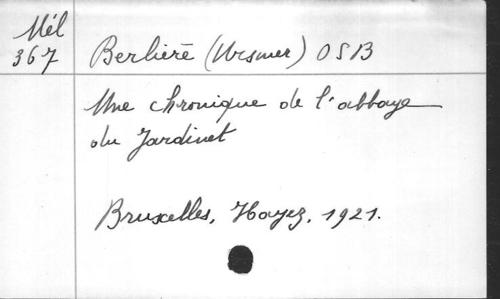 Mél
367
Berlière (Ursmer) OSB
Une chronique de l'abbaye
du Jardinet
Bruxelles, Hayez, 1921.